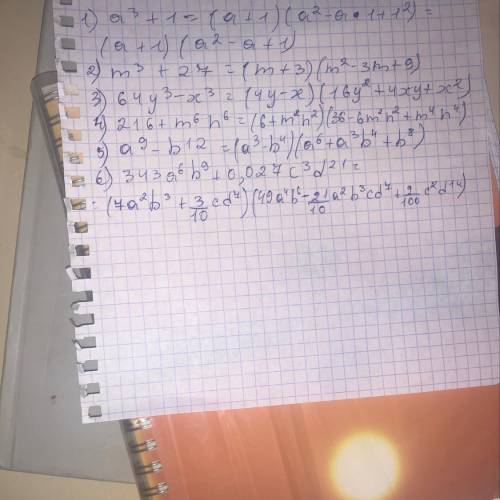 1) a³ + 1 = (a + 1)(a² - a • 1 + 1²) =
(a + 1)(a² - a + 1)
2) m³ + 27 = (m + 3)(m² - 3m + 9)
3) 64y³ - x³ = (4y - x)(16y² + 4xy + x²)
4) 216 + m⁶n⁶ = (6 + m²n²)(36 - 6m²n² + m⁴n⁴)
5) a⁹ - b¹² = (a³ - b⁴)(a⁶ + a³b⁴ + b⁸)
6) 343a⁶b⁹ + 0,027c³d²¹ =
= (7a²b³ + 3/10 cd⁷)(49a⁴b⁶ - 21/10 a²b³cd⁷ + 9/100 c²d¹⁴)